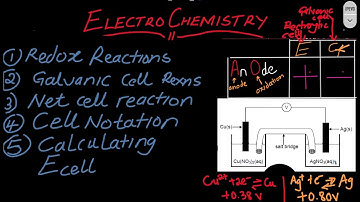 ELECTROCHEMISTRY
Galvanic cell
Electrolytic cell
① Redox Reactions
② Galvanic Cell Rexns
③ Net cell reaction
④ Cell Notation
⑤ Calculating
Ecell
E
An Ode
anode
oxidation
+
−
V
Cu(s)
Ag(s)
salt bridge
Cu(NO₃)₂(aq)
AgNO₃(aq)
Cu²⁺+2e⁻⇌Cu
+0.38V
Ag⁺+e⁻⇌Ag
+0.80V